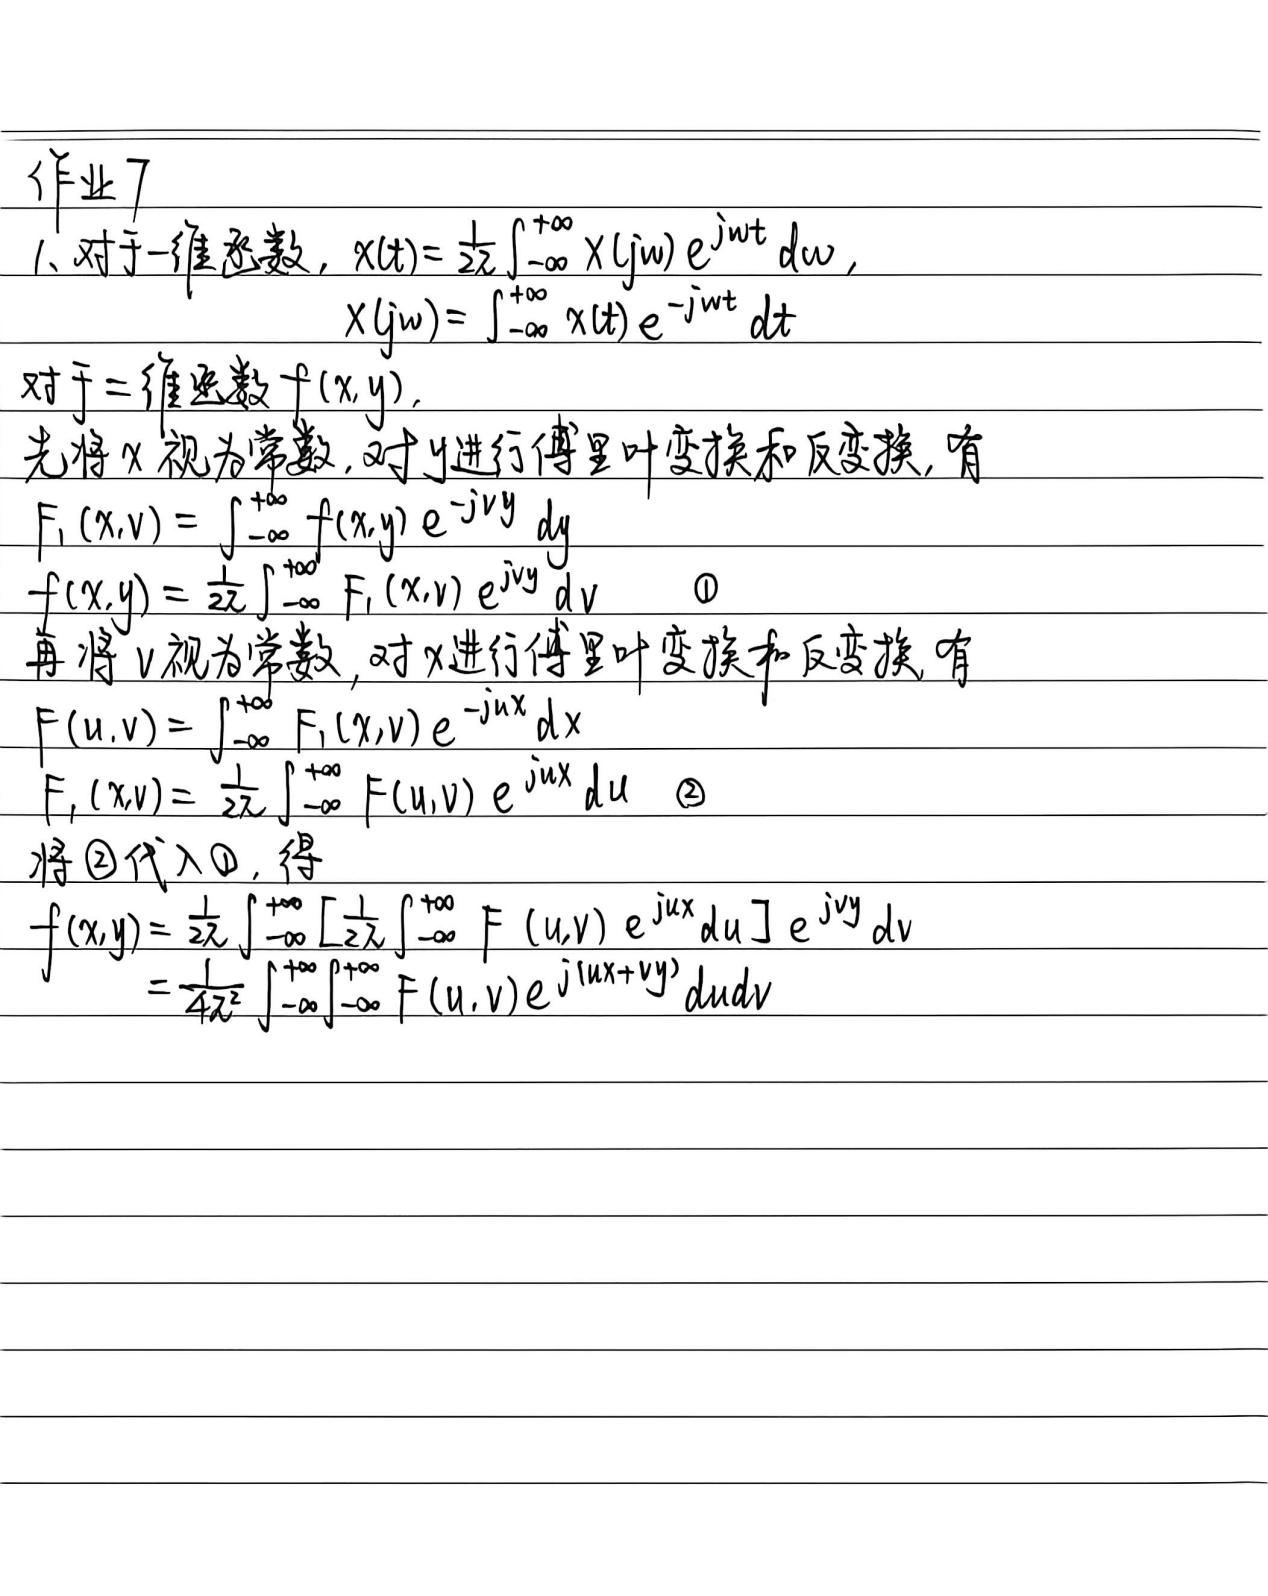 作业7
1、对于一维函数, x(t) = 1/2π ∫_{-∞}^{+∞} X(jw) e^{jwt} dw,
X(jw) = ∫_{-∞}^{+∞} x(t) e^{-jwt} dt
对于二维函数 f(x,y),
先将 x 视为常数, 对 y 进行傅里叶变换和反变换, 有
F₁(x,v) = ∫_{-∞}^{+∞} f(x,y) e^{-jvy} dy
f(x,y) = 1/2π ∫_{-∞}^{+∞} F₁(x,v) e^{jvy} dv ①
再将 v 视为常数, 对 x 进行傅里叶变换和反变换, 有
F(u,v) = ∫_{-∞}^{+∞} F₁(x,v) e^{-jux} dx
F₁(x,v) = 1/2π ∫_{-∞}^{+∞} F(u,v) e^{jux} du ②
将②代入①, 得
f(x,y) = 1/2π ∫_{-∞}^{+∞} [1/2π ∫_{-∞}^{+∞} F(u,v) e^{jux} du] e^{jvy} dv
= 1/4π² ∫_{-∞}^{+∞} ∫_{-∞}^{+∞} F(u,v) e^{j(ux+vy)} dudv